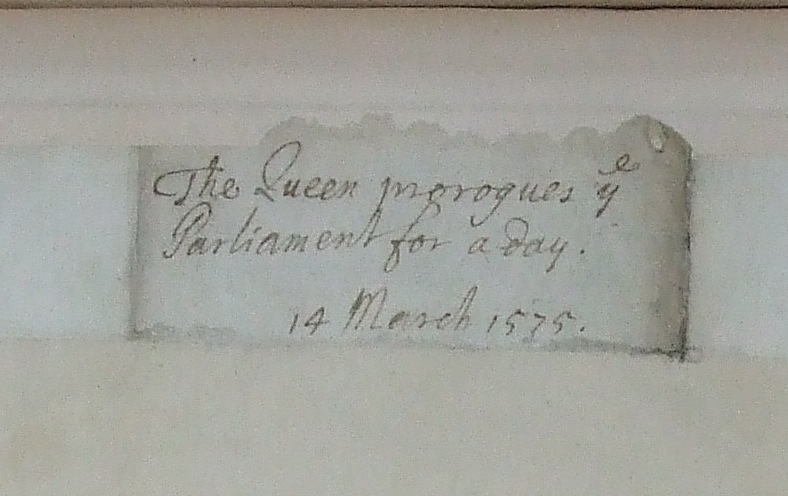 The Queen prorogues yᵉ
Parliament for a day.
14 March 1575.